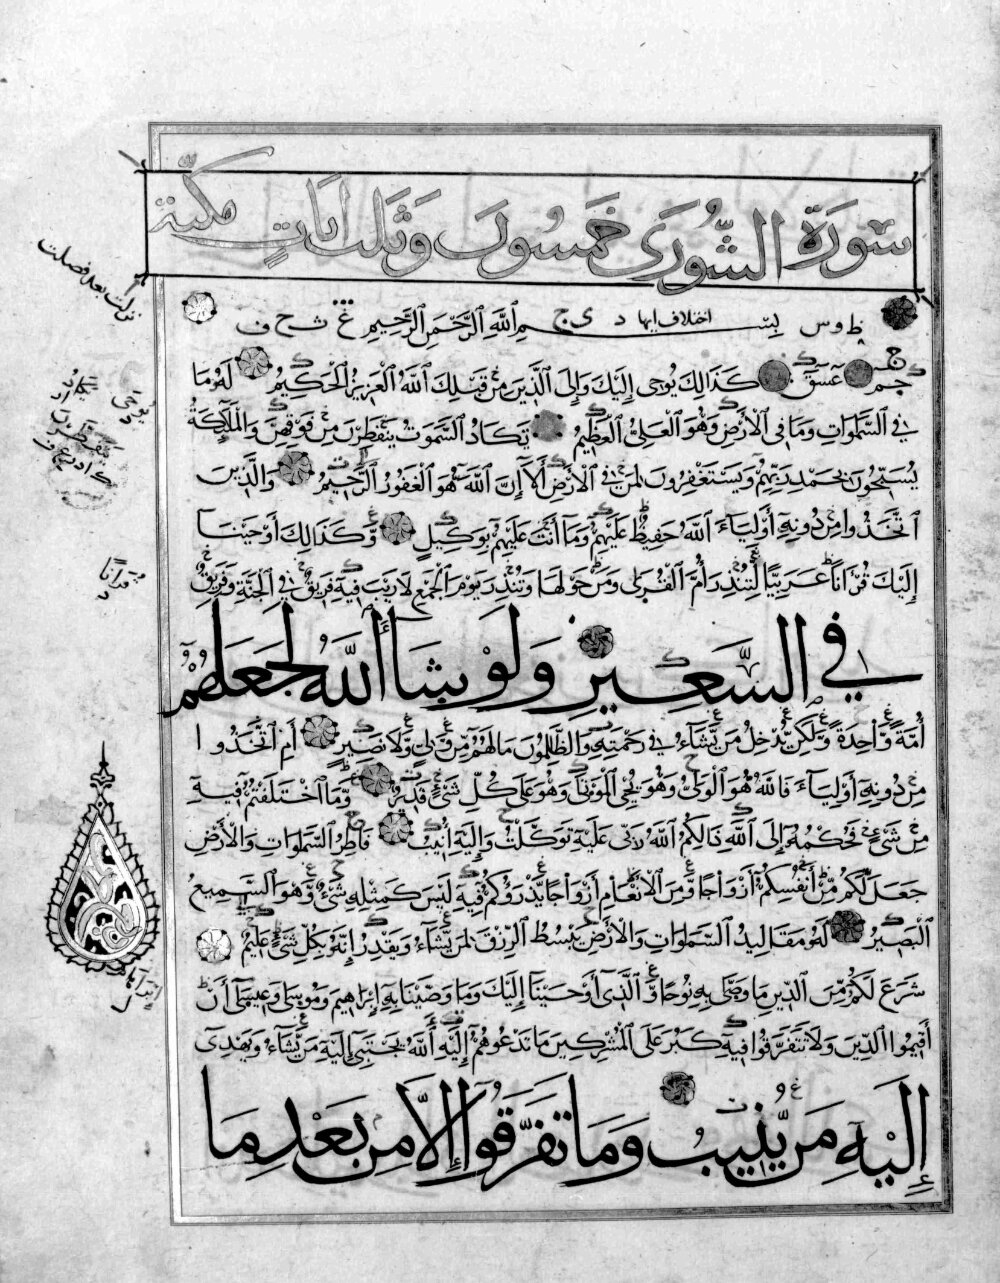 سورة الشورى خمسون وثلث ايات مكية
بِسْمِ اللَّهِ الرَّحْمَٰنِ الرَّحِيمِ
حم عسق كَذَٰلِكَ يُوحِي إِلَيْكَ وَإِلَى الَّذِينَ مِنْ قَبْلِكَ اللَّهُ الْعَزِيزُ الْحَكِيمُ لَهُ مَا
فِي السَّمٰوَاتِ وَمَا فِي الْأَرْضِ وَهُوَ الْعَلِيُّ الْعَظِيمُ تَكَادُ السَّمٰوٰتُ يَتَفَطَّرْنَ مِنْ فَوْقِهِنَّ وَالْمَلٰٓئِكَةُ
يُسَبِّحُونَ بِحَمْدِ رَبِّهِمْ وَيَسْتَغْفِرُونَ لِمَنْ فِي الْأَرْضِ أَلَا إِنَّ اللَّهَ هُوَ الْغَفُورُ الرَّحِيمُ وَالَّذِينَ
اتَّخَذُوا مِنْ دُونِهِ أَوْلِيَاءَ اللَّهُ حَفِيظٌ عَلَيْهِمْ وَمَا أَنْتَ عَلَيْهِمْ بِوَكِيلٍ وَكَذَٰلِكَ أَوْحَيْنَا
إِلَيْكَ قُرْآنًا عَرَبِيًّا لِتُنْذِرَ أُمَّ الْقُرَىٰ وَمَنْ حَوْلَهَا وَتُنْذِرَ يَوْمَ الْجَمْعِ لَا رَيْبَ فِيهِ فَرِيقٌ فِي الْجَنَّةِ وَفَرِيقٌ
فِي السَّعِيرِ وَلَوْ شَاءَ اللَّهُ لَجَعَلَهُمْ
أُمَّةً وَاحِدَةً وَلَٰكِنْ يُدْخِلُ مَنْ يَشَاءُ فِي رَحْمَتِهِ وَالظَّالِمُونَ مَا لَهُمْ مِنْ وَلِيٍّ وَلَا نَصِيرٍ أَمِ اتَّخَذُوا
مِنْ دُونِهِ أَوْلِيَاءَ فَاللَّهُ هُوَ الْوَلِيُّ وَهُوَ يُحْيِي الْمَوْتَىٰ وَهُوَ عَلَىٰ كُلِّ شَيْءٍ قَدِيرٌ وَمَا اخْتَلَفْتُمْ فِيهِ
مِنْ شَيْءٍ فَحُكْمُهُ إِلَى اللَّهِ ذَٰلِكُمُ اللَّهُ رَبِّي عَلَيْهِ تَوَكَّلْتُ وَإِلَيْهِ أُنِيبُ فَاطِرُ السَّمٰوَاتِ وَالْأَرْضِ
جَعَلَ لَكُمْ مِنْ أَنْفُسِكُمْ أَزْوَاجًا وَمِنَ الْأَنْعَامِ أَزْوَاجًا يَذْرَؤُكُمْ فِيهِ لَيْسَ كَمِثْلِهِ شَيْءٌ وَهُوَ السَّمِيعُ
الْبَصِيرُ لَهُ مَقَالِيدُ السَّمٰوَاتِ وَالْأَرْضِ يَبْسُطُ الرِّزْقَ لِمَنْ يَشَاءُ وَيَقْدِرُ إِنَّهُ بِكُلِّ شَيْءٍ عَلِيمٌ
شَرَعَ لَكُمْ مِنَ الدِّينِ مَا وَصَّىٰ بِهِ نُوحًا وَالَّذِي أَوْحَيْنَا إِلَيْكَ وَمَا وَصَّيْنَا بِهِ إِبْرَاهِيمَ وَمُوسَىٰ وَعِيسَىٰ أَنْ
أَقِيمُوا الدِّينَ وَلَا تَتَفَرَّقُوا فِيهِ كَبُرَ عَلَى الْمُشْرِكِينَ مَا تَدْعُوهُمْ إِلَيْهِ اللَّهُ يَجْتَبِي إِلَيْهِ مَنْ يَشَاءُ وَيَهْدِي
إِلَيْهِ مَنْ يُنِيبُ وَمَا تَفَرَّقُوا إِلَّا مِنْ بَعْدِ مَا
نزلت بعد فصلت